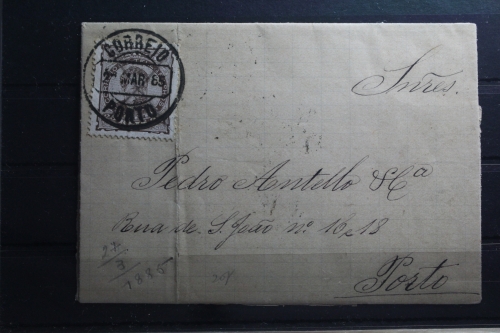 CORREIO
MAR 85
PORTO
Snres.
Pedro Antello & Cª
Rua de S. João nº 16 e 18
Porto
27
3
1885